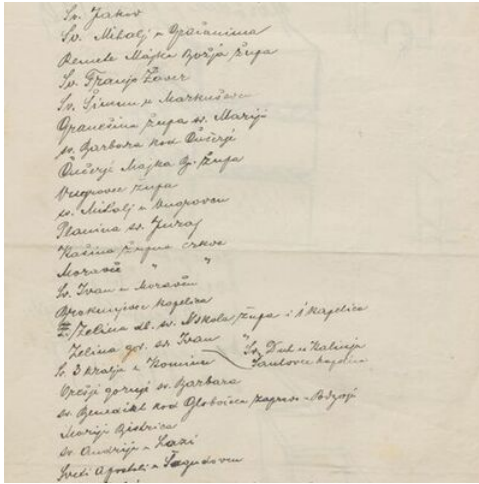 Sv. Jakov
Sv. Mihalj u Gračanima
Remete Majka Božja župa
Sv. Franjo Žaver
Sv. Šimun u Markuševcu
Granešina župa sv. Marije
sv. Barbara kod Čučerja
Čučerje Majka B. župa
Vugrovec župa
sv. Mihalj u Vugrovcu
Planina sv. Juraj
Kašina župna crkva
Moravče " "
Sv. Ivan u Moravču
kapelica
Zelina dl. sv. Nikola župa i 1 kapelica
Zelina gor. sv. Ivan " Sv. Duh u Kalinju
Sv. 3 kralja u Kominu Šantovec kapelica
Orešje gornje sv. Barbara
sv. Benedikt kod Globočca zagreb.
Marija Bistrica
sv. Andrija u Lazi
Sveti Apostoli u